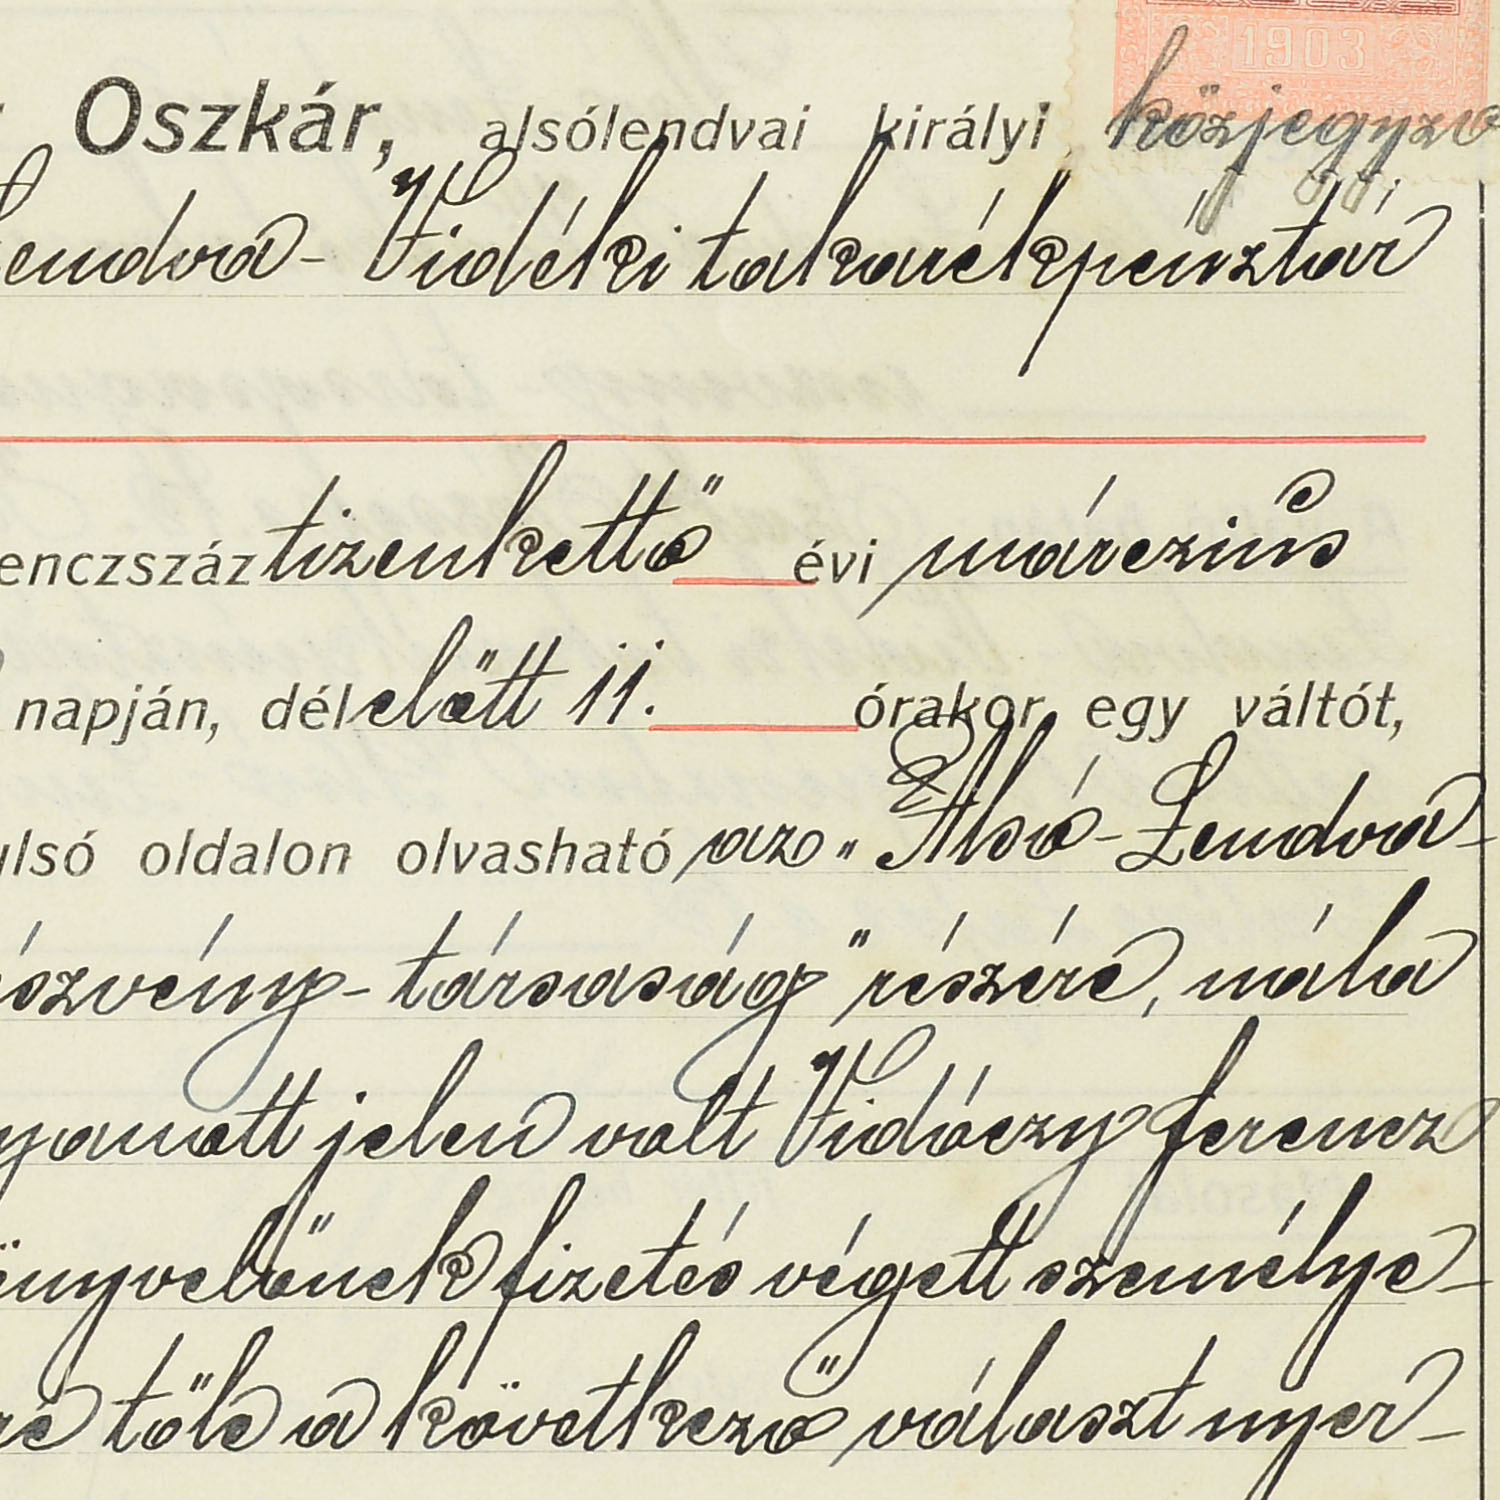 1903
Oszkár, alsólendvai királyi közjegyző
Lendva-Vidéki takarékpénztár
enczszáztizenkettő évi márczius
napján, délelőtt 11. órakor egy váltót,
ulsó oldalon olvasható az „Alsó-Lendva-
észvény-társaság" részére, nála
gyanott jelen volt Vidóczy ferencz
önyvelőnek fizetés végett személye-
re tőle a következő választ nyer-